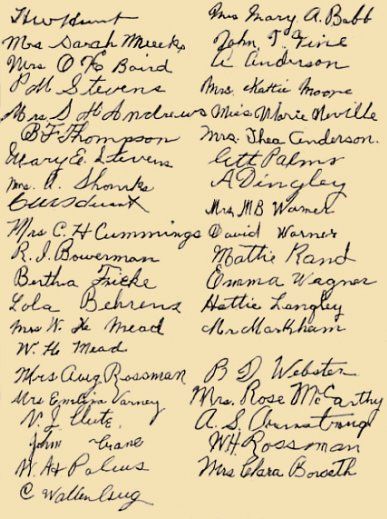 H W Hunt
Mrs Sarah Meeks
Mrs O K Baird
P M Stevens
Mrs S H Andrews
B F Thompson
Mary E. Stevens
Mrs. A. Shonks
Mrs C. H Cummings
R. J. Bowerman
Bertha Fricke
Lola Behrens
Mrs W. H. Mead
W. H. Mead
Mrs Aug Rossman
Mrs. Emeline Varney
John Crane
C Wallenburg
Mrs Mary A. Babb
John T. Fine
A Anderson
Mrs. Kattie Moore
Miss Marie Neville
Mrs. Thea Anderson.
Palms
A Dingley
Mrs MB Warner
David Warner
Mattie Rand
Emma Wagner
Hattie Langley
Mr Markham
B. D. Webster
Mrs. Rose McCarthy
A. S. Armstrong
W.H. Rossman
Mrs